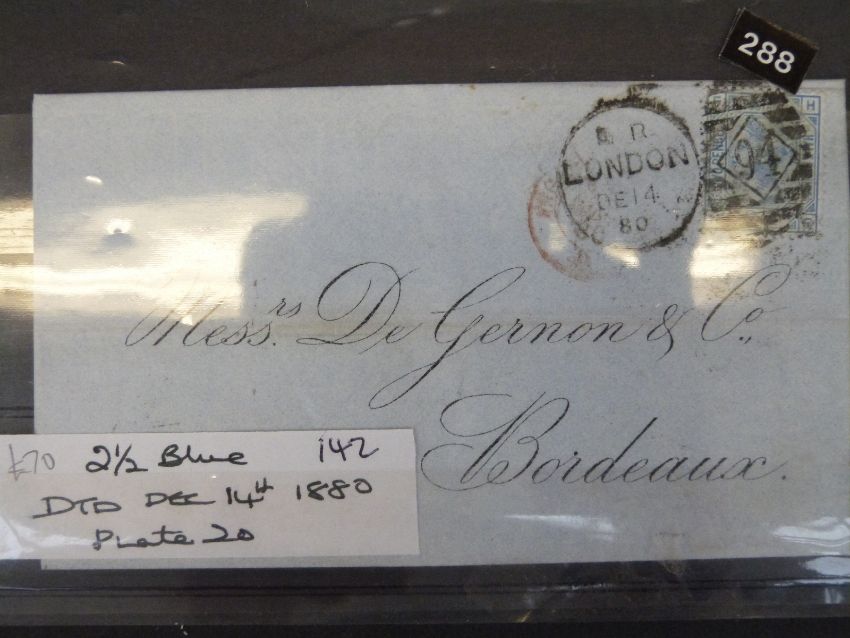 288
H
R
LONDON
DE 14
80
94
Mess.rs De Gernon & Co.,
Bordeaux.
£70 2½ Blue 142
DTD DEC 14th 1880
Plate 20